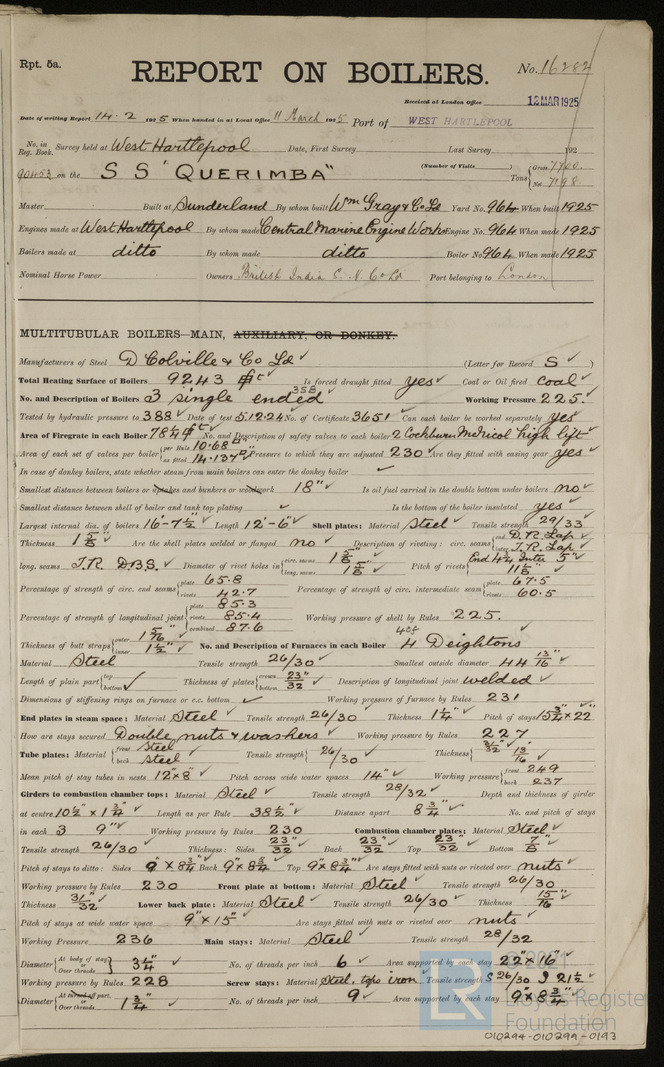 Rpt. 5a.
REPORT ON BOILERS.
No. 16282
Received at London Office 12 MAR 1925
Date of writing Report 14.2 1925 When handed in at Local Office 11 March 1925 Port of WEST HARTLEPOOL
No. in Reg. Book. Survey held at West Hartlepool Date, First Survey Last Survey 192
90453 on the SS "QUERIMBA" (Number of Visits ) Tons { Gross 7700. Net 7198
Master Built at Sunderland By whom built Wm Gray & Co Ld Yard No. 964 When built 1925
Engines made at West Hartlepool By whom made Central Marine Engine Works Engine No. 964 When made 1925
Boilers made at ditto By whom made ditto Boiler No. 964 When made 1925
Nominal Horse Power Owners British India S. N. Co Ld Port belonging to London
MULTITUBULAR BOILERS—MAIN, AUXILIARY, OR DONKEY.
Manufacturers of Steel D Colville & Co Ld ✓ (Letter for Record S ✓ )
Total Heating Surface of Boilers 9243 ft ✓ Is forced draught fitted yes ✓ Coal or Oil fired coal ✓
No. and Description of Boilers 3 single ended ✓ Working Pressure 225. ✓
Tested by hydraulic pressure to 388 ✓ Date of test 5.12.24 No. of Certificate 3651 ✓ Can each boiler be worked separately yes ✓
Area of Firegrate in each Boiler 78¼ ft ✓ No. and Description of safety valves to each boiler 2 Cockburn McNicol high lift
Area of each set of valves per boiler { per Rule 10.68 as fitted 14.137 Pressure to which they are adjusted 230 ✓ Are they fitted with easing gear yes ✓
In case of donkey boilers, state whether steam from main boilers can enter the donkey boiler ✓
Smallest distance between boilers or uptakes and bunkers or woodwork 18" ✓ Is oil fuel carried in the double bottom under boilers no ✓
Smallest distance between shell of boiler and tank top plating ✓ Is the bottom of the boiler insulated yes ✓
Largest internal dia. of boilers 16'-7½" ✓ Length 12'-6" ✓ Shell plates: Material Steel ✓ Tensile strength 29/33 ✓
Thickness 1⅝" ✓ Are the shell plates welded or flanged no ✓ Description of riveting: circ. seams { end D. R. Lap ✓ inter. T. R. Lap ✓
long. seams T.R. D.B.S. ✓ Diameter of rivet holes in { circ. seams 1⅝" ✓ long. seams 1⅝" ✓ Pitch of rivets { End 4¼ Inter 5" ✓ 11⅛" ✓
Percentage of strength of circ. end seams { plate 65.8 rivets 42.7 Percentage of strength of circ. intermediate seam { plate 67.5 rivets 60.5
Percentage of strength of longitudinal joint { plate 85.3 rivets 85.4 combined 87.6 Working pressure of shell by Rules 225.
Thickness of butt straps { outer 1 5/16" ✓ inner 1½" ✓ No. and Description of Furnaces in each Boiler 4 Deightons
Material Steel ✓ Tensile strength 26/30 ✓ Smallest outside diameter 44 13/16" ✓
Length of plain part { top bottom ✓ Thickness of plates { crown 23/32" bottom ✓ Description of longitudinal joint welded ✓
Dimensions of stiffening rings on furnace or c.c. bottom ✓ Working pressure of furnace by Rules 231
End plates in steam space: Material Steel ✓ Tensile strength 26/30 ✓ Thickness 1¼" ✓ Pitch of stays 15¾" × 22" ✓
How are stays secured Double nuts & washers ✓ Working pressure by Rules 227
Tube plates: Material { front Steel back Steel ✓ Tensile strength { 26/30 ✓ Thickness { 31/32" ✓ 13/16" ✓
Mean pitch of stay tubes in nests 12 × 8" ✓ Pitch across wide water spaces 14" ✓ Working pressure { front 249 back 237
Girders to combustion chamber tops: Material Steel ✓ Tensile strength 28/32 ✓ Depth and thickness of girder
at centre 10½" × 1¾" ✓ Length as per Rule 38½" ✓ Distance apart 8¾" ✓ No. and pitch of stays
in each 3 9" ✓ Working pressure by Rules 230 Combustion chamber plates: Material Steel ✓
Tensile strength 26/30 ✓ Thickness: Sides 23/32" Back 23/32" ✓ Top 23/32" ✓ Bottom 7/8" ✓
Pitch of stays to ditto: Sides 9" × 8¾" Back 9" × 8¾" Top 9" × 8¾" ✓ Are stays fitted with nuts or riveted over nuts ✓
Working pressure by Rules 230 Front plate at bottom: Material Steel ✓ Tensile strength 26/30 ✓
Thickness 31/32" ✓ Lower back plate: Material Steel ✓ Tensile strength 26/30 ✓ Thickness 15/16" ✓
Pitch of stays at wide water space 9" × 15" ✓ Are stays fitted with nuts or riveted over nuts ✓
Working Pressure 236 Main stays: Material Steel ✓ Tensile strength 28/32 ✓
Diameter { At body of stay, Over threads 3¼" ✓ No. of threads per inch 6 ✓ Area supported by each stay 22" × 16" ✓
Working pressure by Rules 228 Screw stays: Material Steel. tops iron ✓ Tensile strength S 26/30 I 21½ ✓
Diameter { At turned off part, Over threads 1¾" ✓ No. of threads per inch 9 ✓ Area supported by each stay 9" × 8¾" ✓
LR
© 2021
Lloyd's Register
Foundation
010294-010299-0193